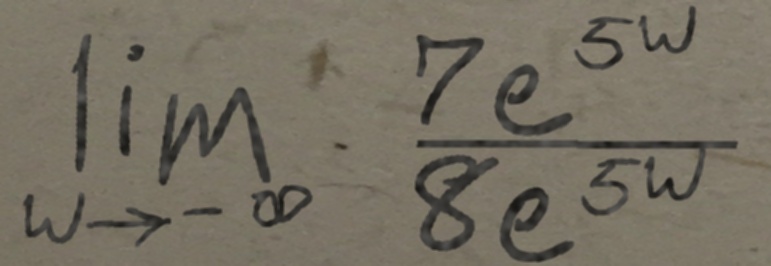 \lim_{w \to -\infty} \frac{7e^{5w}}{8e^{5w}}